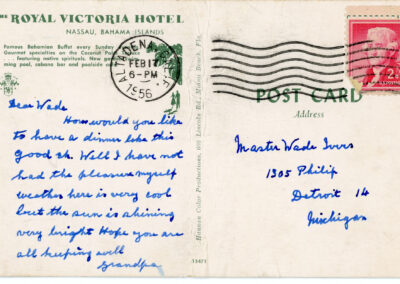 THE ROYAL VICTORIA HOTEL
NASSAU, BAHAMA ISLANDS
Famous Bohemian Buffet every Sunday
Gourmet specialties on the Coconut Palm
featuring native spirituals. New
ming pool, cabana bar and poolside
ALTADENA, CALIF.
FEB 17
6-PM
1956
Dear Wade
How would you like
to have a dinner like this
good eh. Well I have not
had the pleasure myself
weather here is very cool
but the sun is shining
very bright Hope you are
all keeping well
Grandpa
Lincoln Rd., Miami Beach, Fla.
POST CARD
Address
Master Wade Ivers
1305 Philip
Detroit 14
Michigan